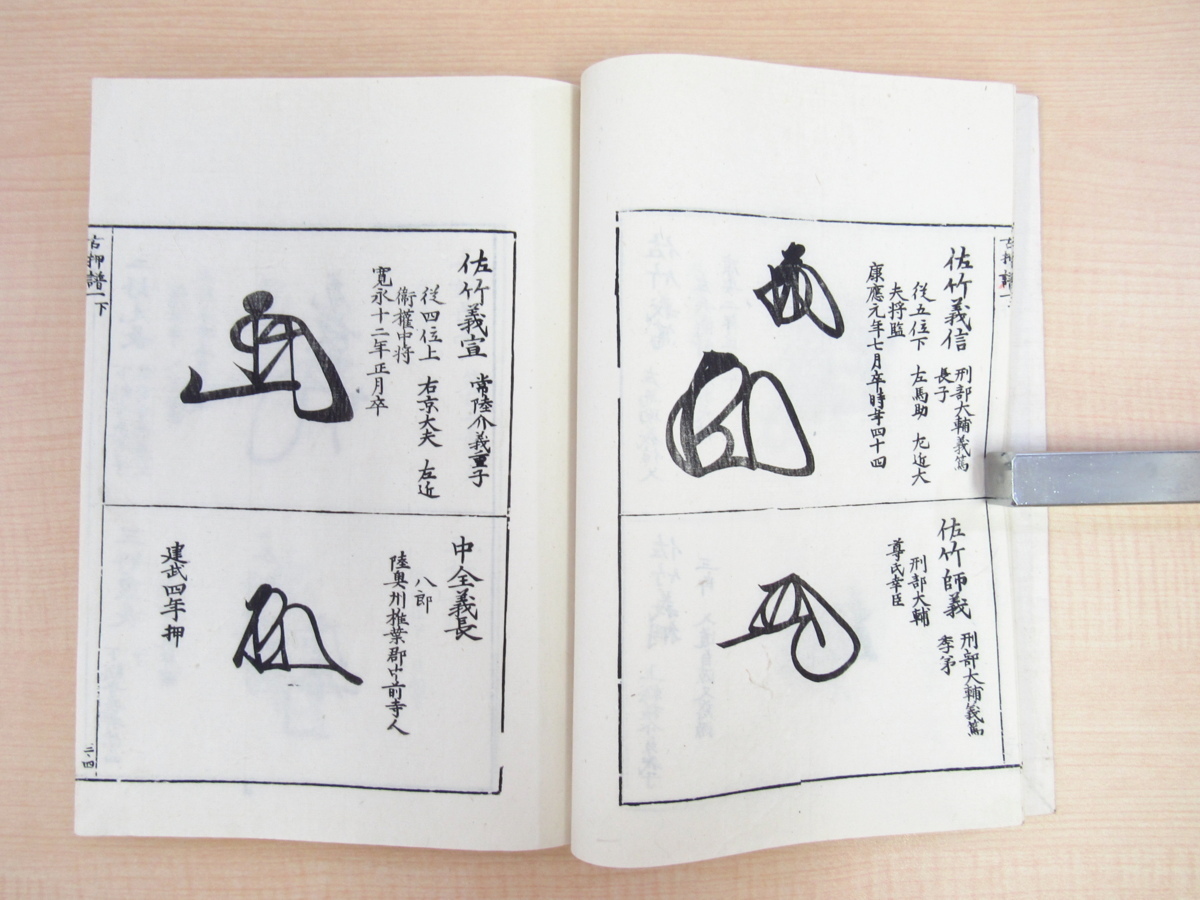 古押譜一
佐竹義信
刑部大輔義篤
長子
従五位下 左馬助 九近大
夫将監
康應元年七月卒時年四十四
佐竹師義
刑部大輔義篤
季弟
刑部大輔
尊氏幸臣
佐竹義宣
常陸介義重子
従四位上 右京大夫 左近
衛權中将
寛永十二年正月卒
中全義長
八郎
陸奥州椎葉郡中前寺人
建武四年押
古押譜一下
二ノ四